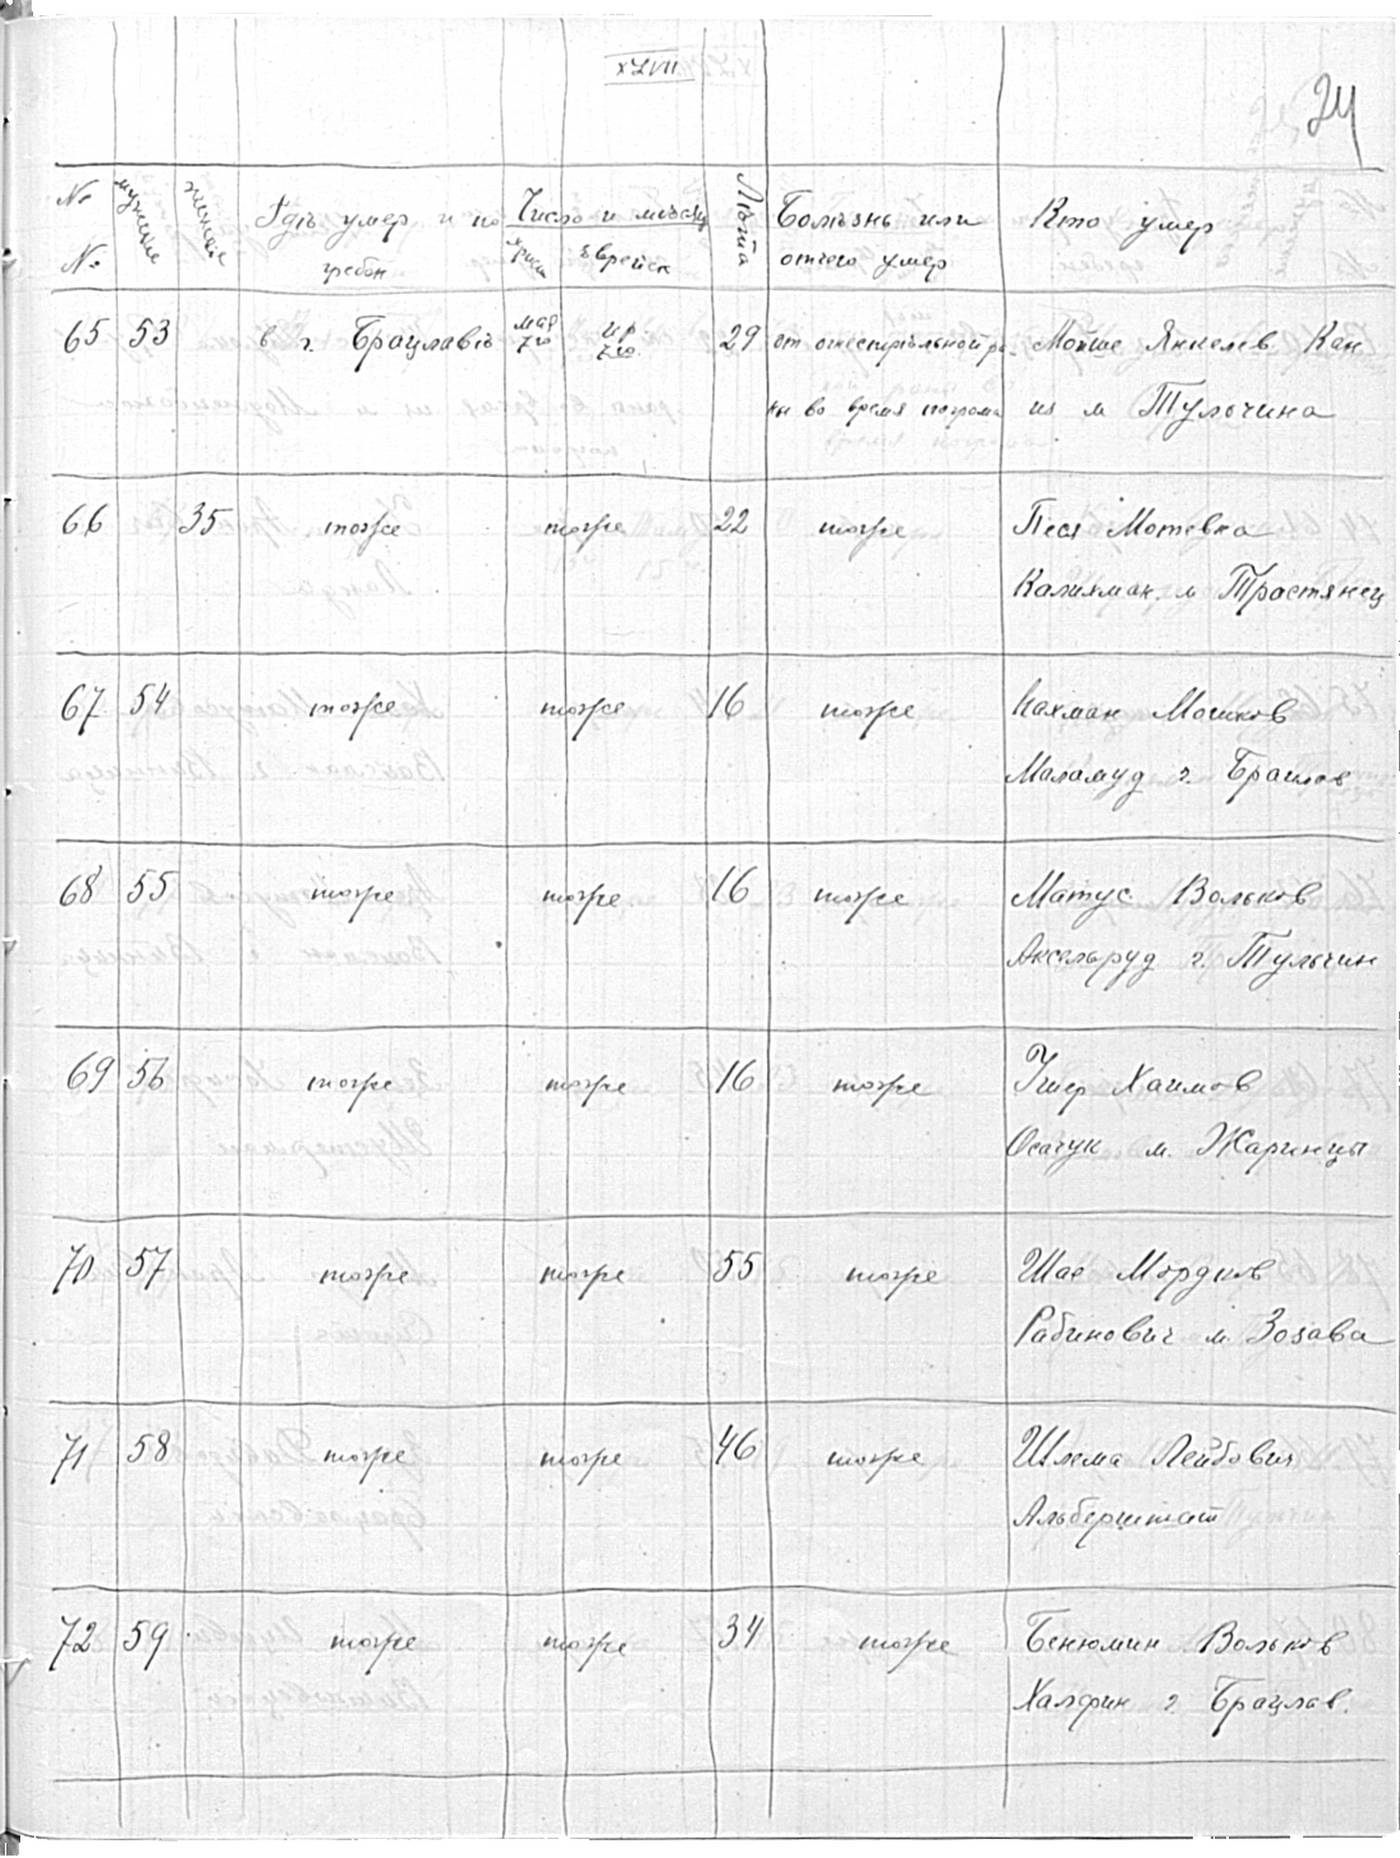 XLVII
24
№ № мужчие женские Гдѣ умер и по Число и мѣсяц Лѣта Болѣзнь или Кто умер
гребон христ еврейск отчего умер
65 53 в г. Брацлавѣ мая 7го ир 7го 29 от огнестрѣльной ра- Мойше Янкелев Кан
ны во время погрома из м Тульчина
66 35 тоже тоже 22 тоже Песя Мотевна
Калихман м Тростянец
67 54 тоже тоже 16 тоже Нахман Мошков
Маламуд г. Брацлав
68 55 тоже тоже 16 тоже Матус Вольков
Аксельруд г. Тульчин
69 56 тоже тоже 16 тоже Ушер Хаимов
Осачук м. Жаринцы
70 57 тоже тоже 55 тоже Шае Мордков
Рабинович м. Зозава
71 58 тоже тоже 46 тоже Шлема Лейбович
Альберштат
72 59 тоже тоже 34 тоже Бенюмин Вольков
Халфин г Брацлав.